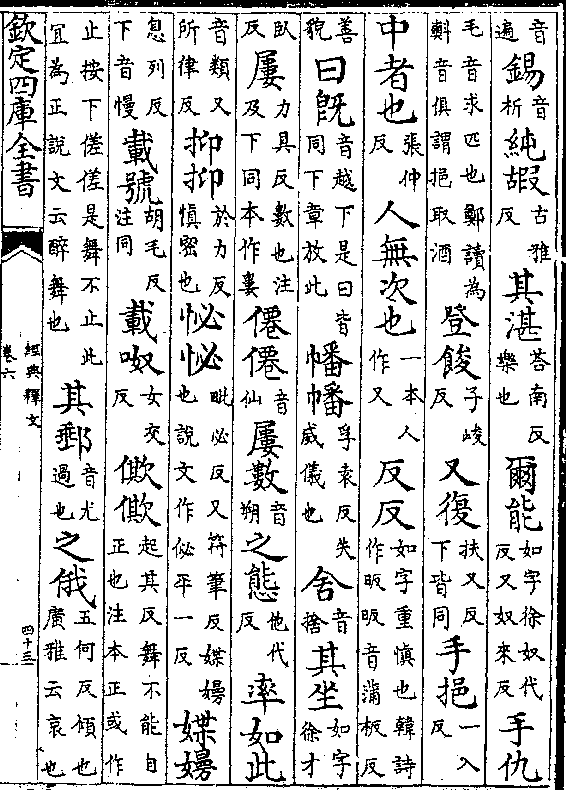 音遍錫音析純嘏古雅反其湛荅南反樂也爾能如字徐奴代反又奴來反手仇
毛音求匹也鄭讀為㪺音俱謂挹取酒登餕子峻反又復扶又反下皆同手挹一入反
中者也張仲反人無次也一本人作又反反如字重慎也韓詩作昄昄音蒲板反
善貌曰既音越下是曰皆同下章放此幡幡孚袁反失威儀也舍音捨其坐如字徐才
臥反屢力具反數也注及下同本作婁僊僊音仙屢數音朔之態他代反率如此
音類又所律反抑抑於力反慎密也怭怭毗必反又符筆反媟嫚也說文作佖平一反媟嫚
息列反下音慢載號胡毛反注同載呶女交反僛僛起其反舞不能自正也注本正或作
止按下傞傞是舞不止此宜為正說文云醉舞也其郵音尤過也之俄五何反傾也廣雅云哀也
欽定四庫全書
經典釋文
卷六
四十三